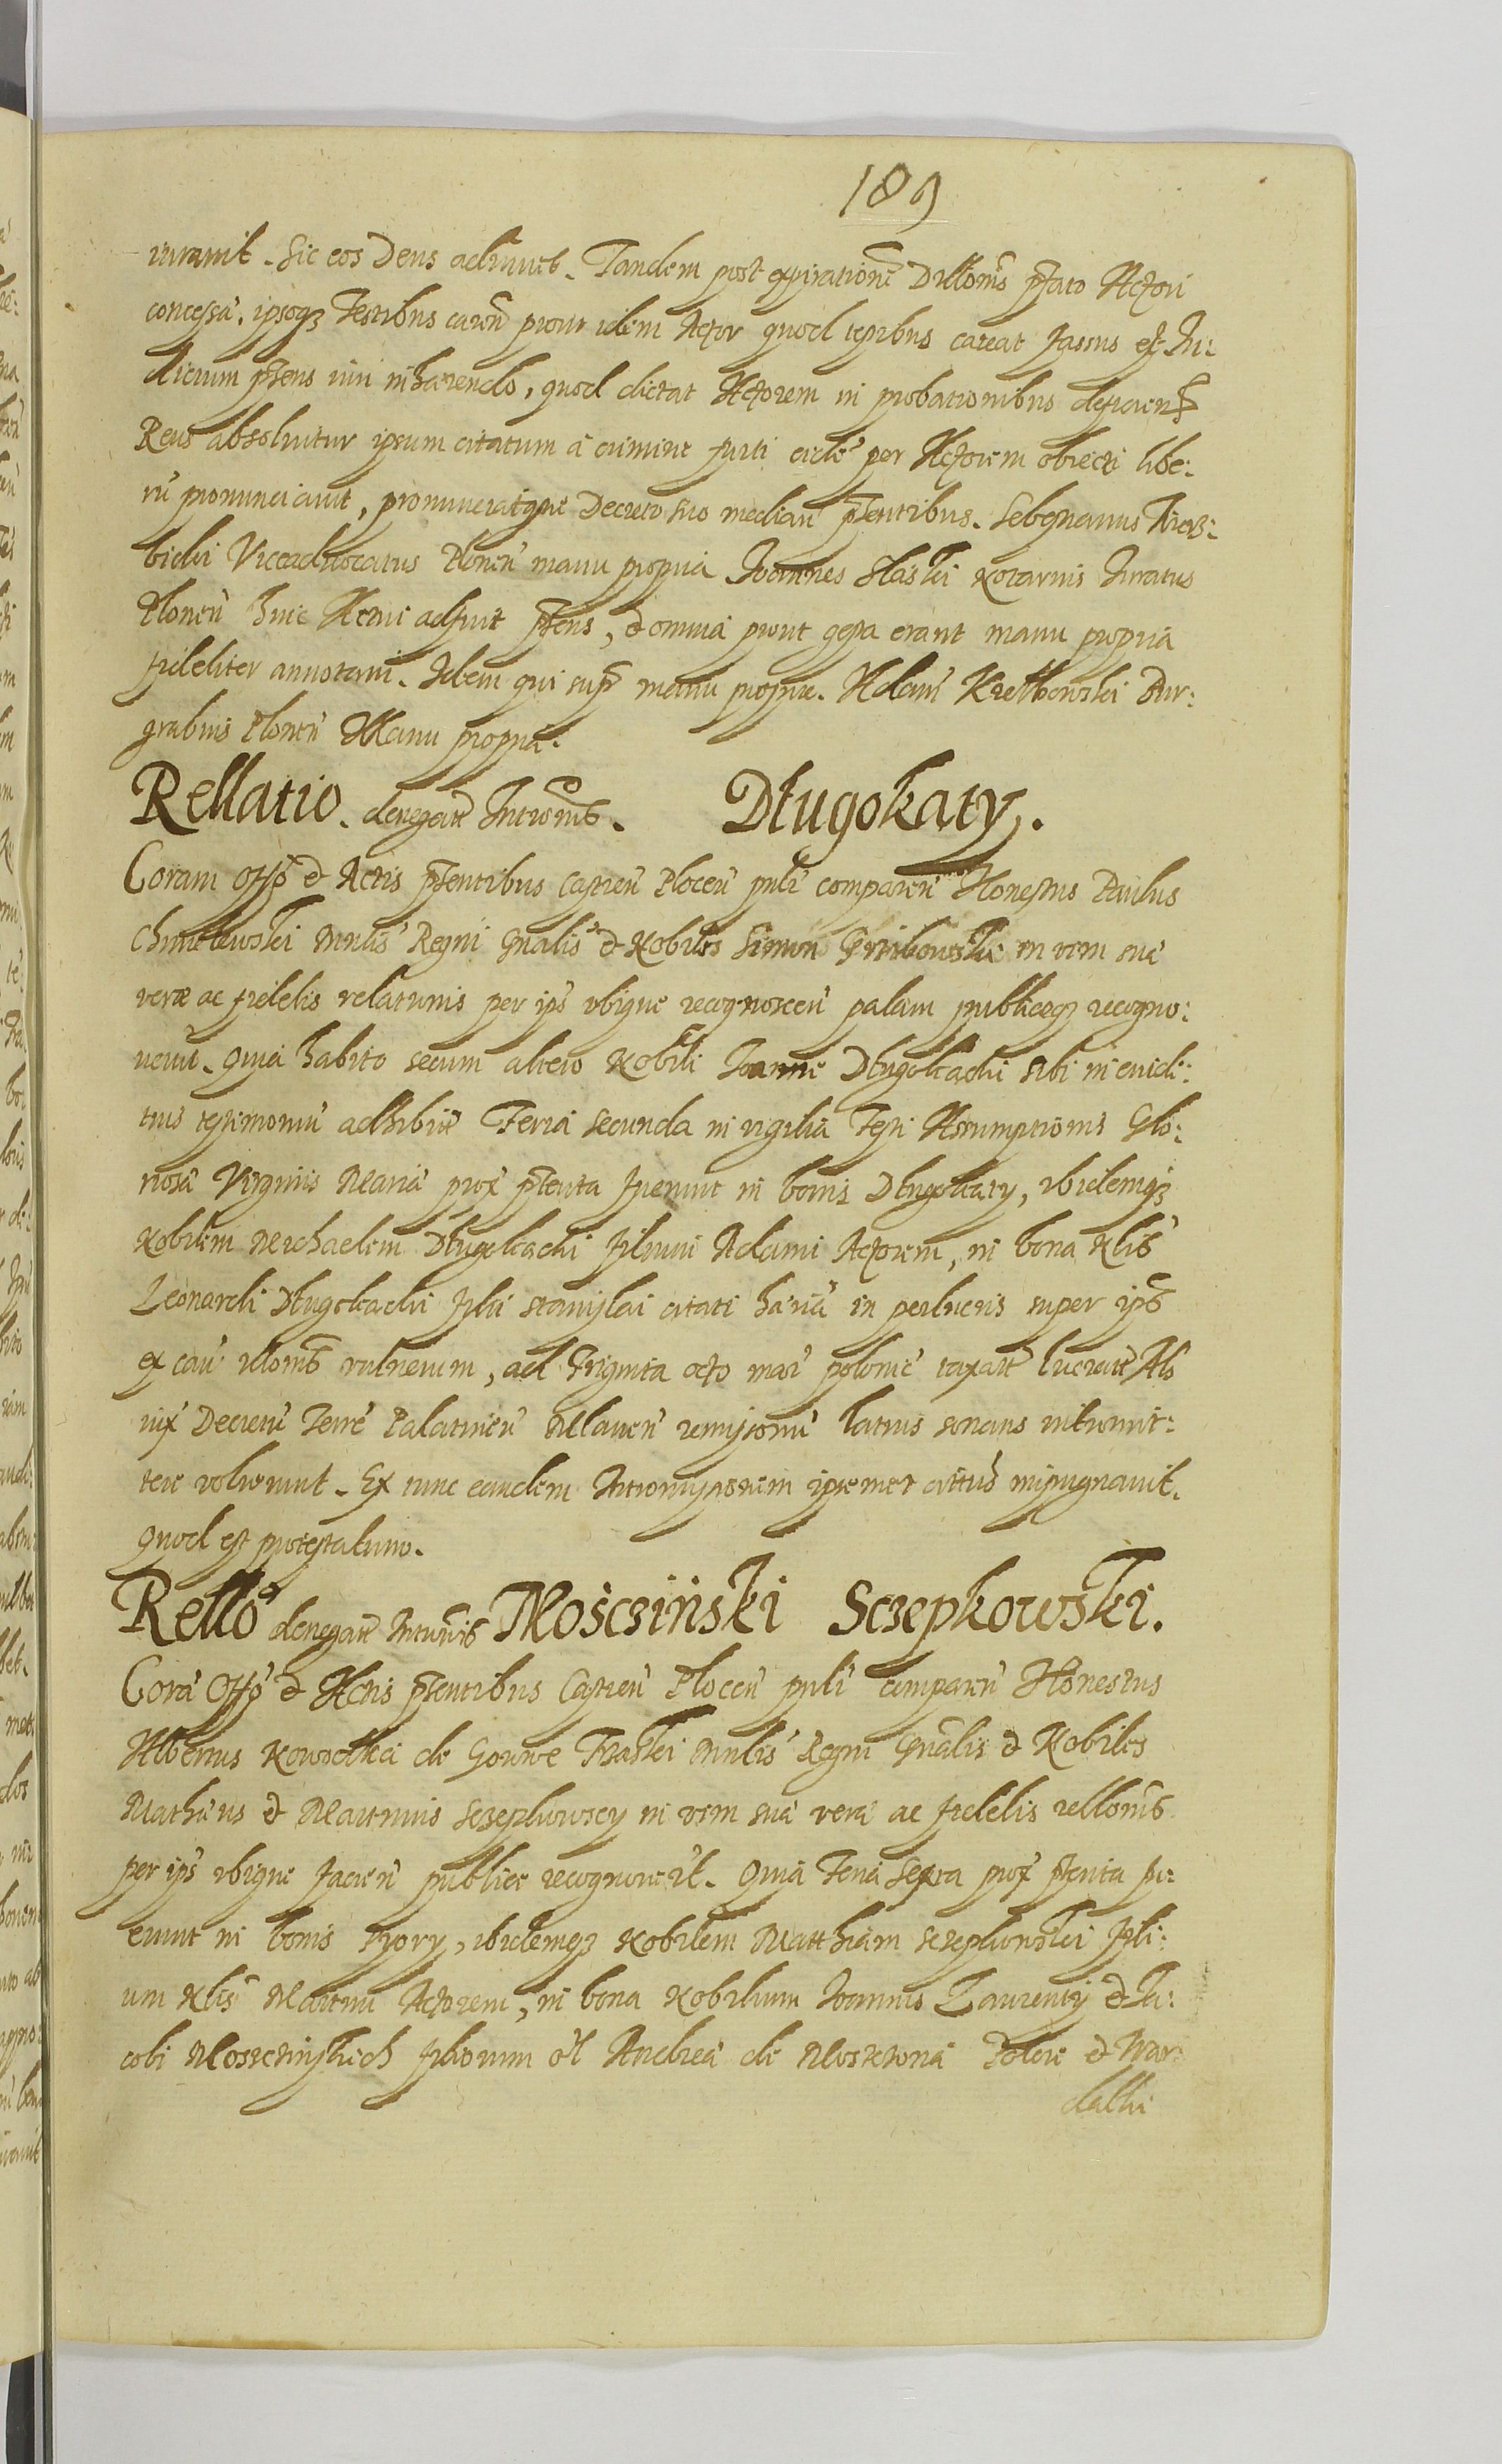 189
iuravit. Sic eos Deus adiuvet. Tandem post expirationē Dillonis pfato Actori
concessā. ipsoq3 Testibus careñ prout idem Actor quod testibus careat fassus est Iu:
dicium pñens iuri inhærendo, quod dictat Actorem in probationibus deficien
Reus absolvitur ipsum citatum à crimine furti eidē per Actorem obiecti libe:
rū pronunciavit, pronunciatque Decreto suo median pñtentibus. Sebgnavus
bicki Viceadvocatus Plonen manu propria Joannes Slaski Notarius Iuratus
Plonen huic Actui adfuit pñens, & omnia prout gesta erant manu propria
fideliter annotavi. Idem qui supr manu propria. Adam Kretkowski Bur:
grabius Plonen Manu propria.
Rellatio. denegatæ Intromis. Długokąty.
Coram Offo & Actis pñtentibus Castren Plocen pnlr comparen Honestus Paulus
Chmielewski Mnlis Regni Gnalis & Nobiles Simon Grzibowski in vim suæ
veræ ac fidelis relationis per ips ubique recognoscen palam publiceq3 recogno:
verū. Quia habito secum altero Nobili Joanne Długokacki sibi in evide:
tius testimoniū adhibit Feria secunda in vigilia Festi Assumptionis Glo:
riosæ Virginis Mariæ prox pterita fuerunt in bonis Długokaty, ibidemq3
Nobilem Michaelem Długokacki filium Adami Actorem, in bona Nlis
Leonardi Długokacki filii Stanislai citati hāria in perlucris super ips
ex cau rlonis vulnerum, ad Triginta octo mar polonic taxatæ lucratæ Als
iux Decretū Terre Palatinen Mlaven remissoriū latius sonans intromit:
tere voluerunt. Ex tunc eandem Intromissionem ipsemet cittus inpugnavit.
Quod est protestatum.
Rellō denegatæ Intromis Mościński Sczepkowski.
Corā Offō & Actis pñtentibus Castren Plocen pnlr comparen Honestus
Albertus Nowotka de Gorne Traski Mnlis Regni Gnalis & Nobiles
Mathæus & Martinus Sczepkowscy in vim suæ veræ ac fidelis rellonis
per ips ubique facien publice recognoverūt. Quia Feria Sexta prox pterita fu:
erunt in bonis Pyory, ibidemq3 Nobilem Matthiam Sczepkowski fili:
um Nlis Martini Actorem, in bona Nobilium Joannis Laurentÿ & Ia:
cobi Mosczinskich filiorum ol Andreæ de Mosczona Poloni & War:
dalki